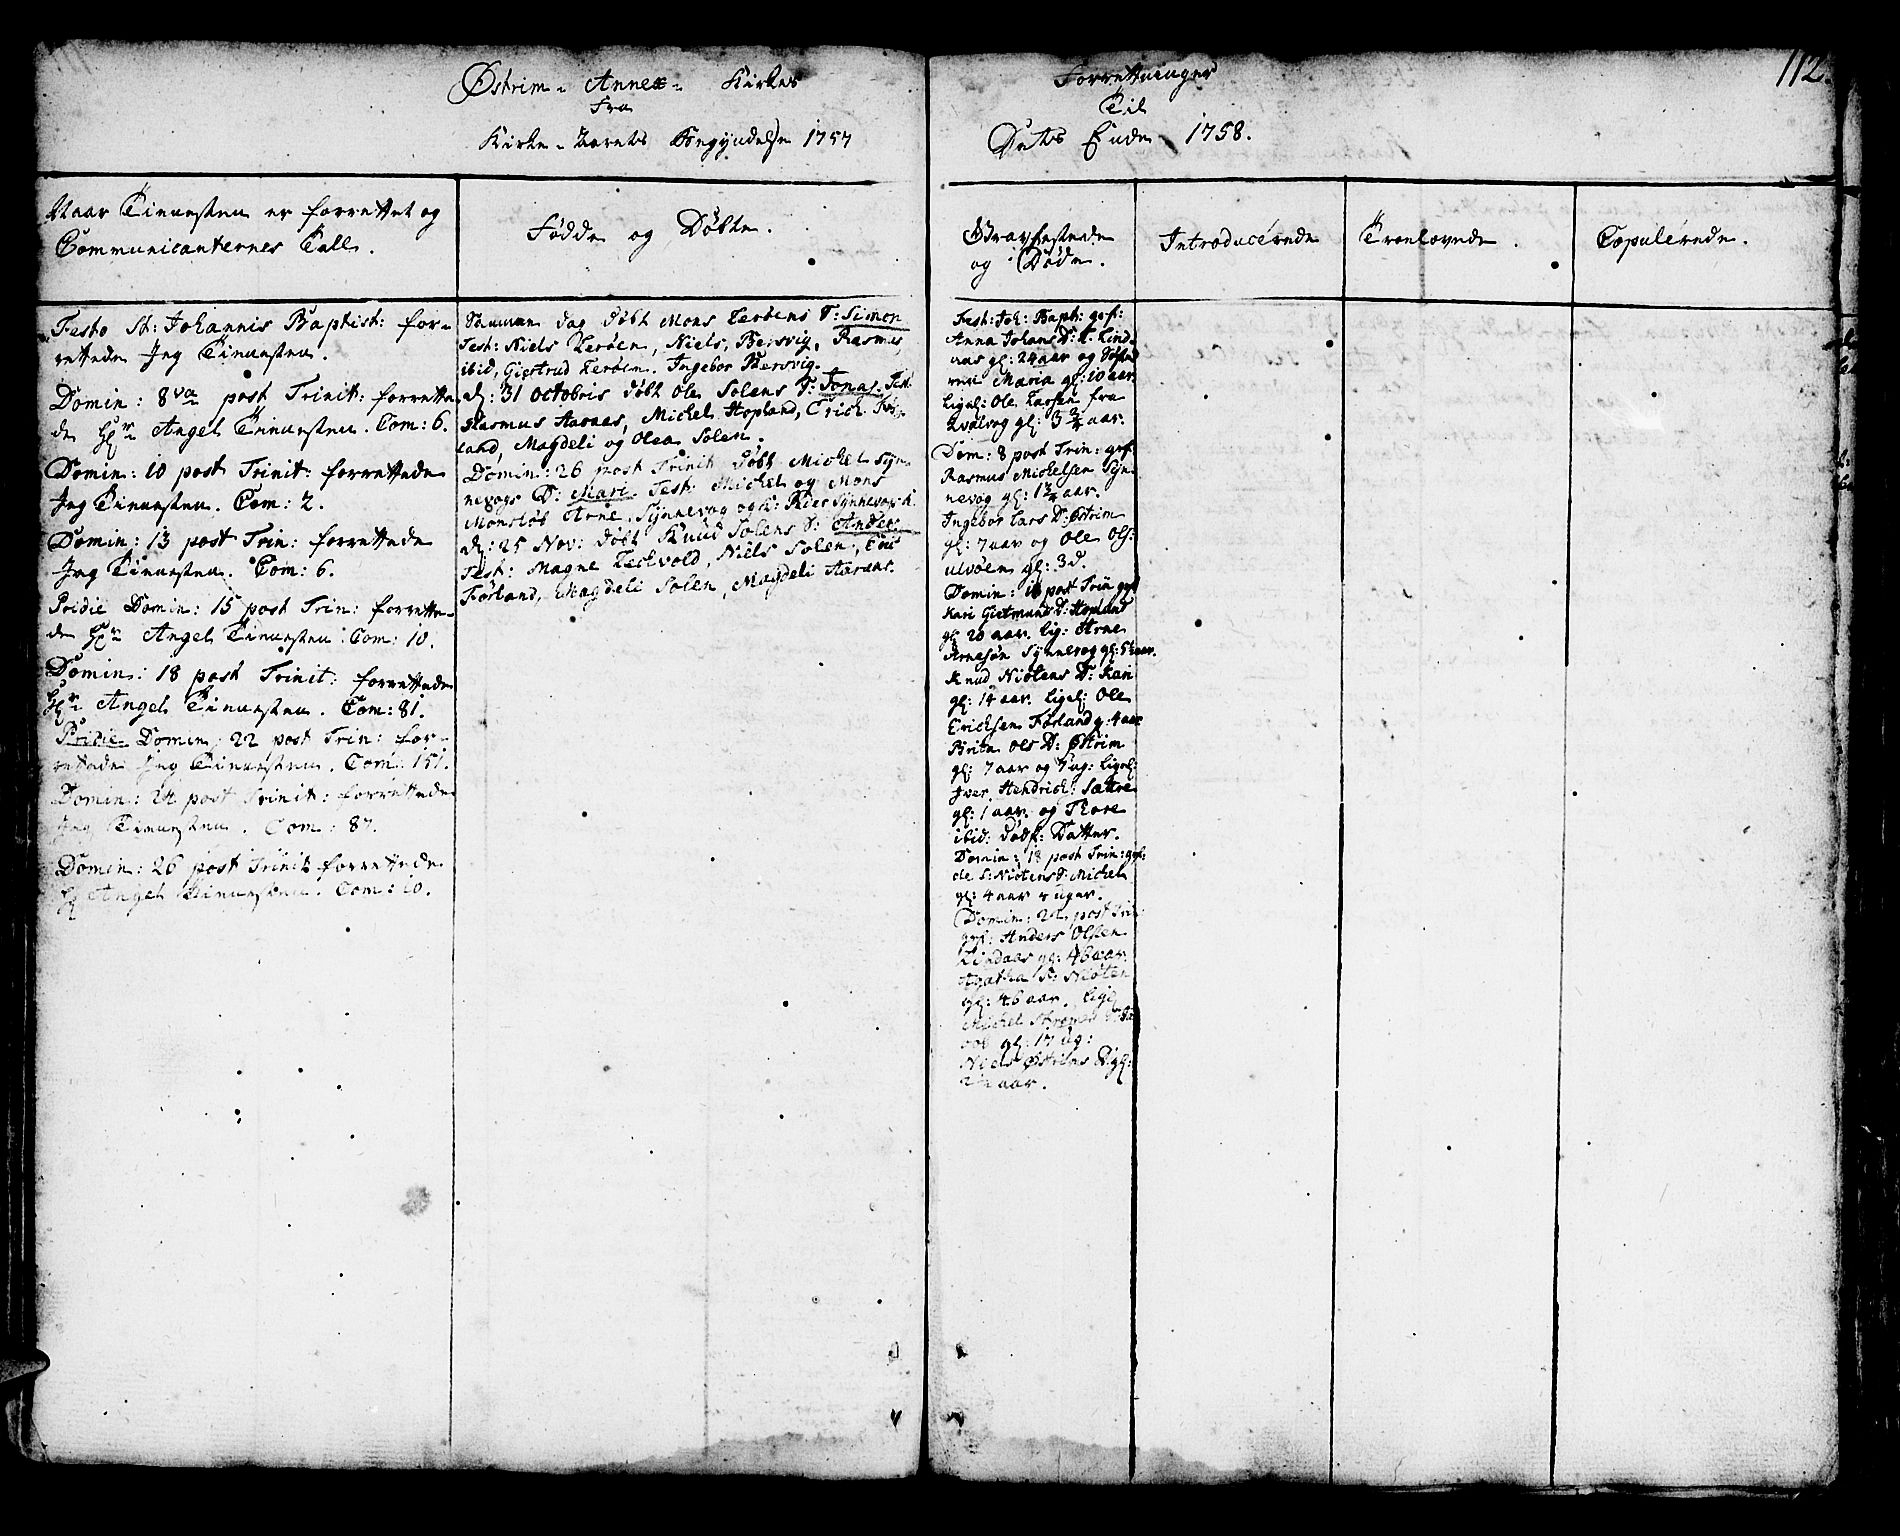 112.
Østrim - Annex - Kirkes
Fra
Kirke-Aarets Begyndelse 1757
Forrettninger
Til
Dets Ende 1758.
Naar Tienesten er forrettet og
Communicanternes Tall.
Fødde og Døbte.
Gravfestede
og Døde.
Introducérede
Troelovede.
Copulérede.
Festo St: Johannis Baptist: for-
rettede Jeg Tienesten.
Domin: 8va post Trinit: forrette-
de Hr Angel Tienesten. Com: 6.
Domin: 10 post Trinit: forrettede
Jeg Tienesten. Com: 2.
Domin: 13 post Trin: forrettede
Jeg Tienesten. Com: 6.
Pridie Domin: 15 post Trin: forrette-
de Hr Angel Tienesten. Com: 10.
Domin: 18 post Trinit: forrettede
Hr Angel Tienesten. Com: 81.
Pridie Domin: 22 post Trin: for-
rettede Jeg Tienesten. Com: 151.
Domin: 24 post Trinit: forrettede
Jeg Tienesten. Com: 87.
Domin: 26 post Trinit forrettede
Hr Angel Tienesten. Com: 10.
Samme dag døbt Mons Kerøens S: Simon
Test: Niels Kerøen, Niels, Beisvig, Rasmus
ibid, Giertrud Kerøen. Ingebor Bersvig.
d: 31 Octobris døbt Ole Solens S: Jonas. Test:
Rasmus Aarnes, Michel Hopland, Erich Før-
land, Magdeli og Olea Solen.
Domin: 26 post Trinit døbt Michel Syn-
nevogs D: Mari Test: Michel og Mons
Monsløb Arne, Synnevog og Synnevog
d: 25 Nov: døbt Knud Solens S: Anders
Test: Magne Festvold, Niels Solen, Eric
Førland, Magdeli Solen, Magdeli Aarnes.
Fest: Joh: Bapt: grf:
Anna Johans D: Lind-
aas gl: 24 aar og
Maria gl: 10 aar.
Ligel: Ole Larsen fra
Kvalvog gl: 3 3/4 aar.
Dom: 8 post Trin: grf
Rasmus Michelsen Syn-
nevog gl: 1 3/4 aar.
Ingebor Lars D: Østrim
gl: 7 aar og Ole Ols:
Ulvøen gl: 3 d.
Domin: 10 post Trin grf
Kari Gietmund D: Hopland
gl 20 aar. lig: Arne
Arnesøn Synnevog gl: 5 aar.
Knud Niøtens D: Kari
gl: 14 aar. ligel: Ole
Erichsen Førland g: 4 aar
Brita Ols D: Østrim
gl: 7 aar og 7 ug: ligel:
Iver Hendrich: Sætre
gl: 1 aar. og Thore
ibid: dødf: Datter.
Domin: 18 post Trin: grf:
de S: Niøtens S: Michel
gl: 4 aar uger.
Domin: 22 post Trin
grf: Anders Olsen
Lindaas gl: 46 aar.
Agatha Niøten
gl: 46 aar. lige
Michel
gl: 17 ug:
Niels Østrims gl:
aar.